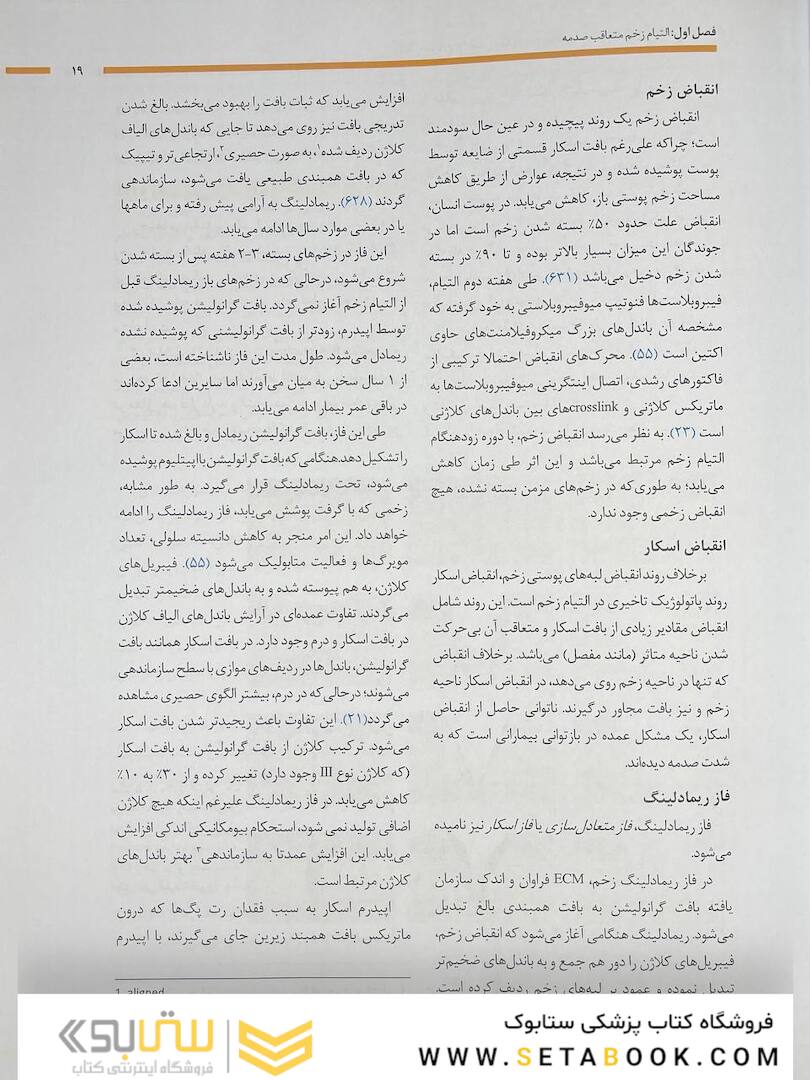 فصل اول: التیام زخم متعاقب صدمه
۱۹
انقباض زخم
انقباض زخم یک روند پیچیده و در عین حال سودمند
است؛ چراکه علی‌رغم بافت اسکار قسمتی از ضایعه توسط
پوست پوشیده شده و در نتیجه، عوارض از طریق کاهش
مساحت زخم پوستی باز، کاهش می‌یابد. در پوست انسان،
انقباض علت حدود ۵۰٪ بسته شدن زخم است اما در
جوندگان این میزان بسیار بالاتر بوده و تا ۹۰٪ در بسته
شدن زخم دخیل می‌باشد (۶۳۱). طی هفته دوم التیام،
فیبروبلاست‌ها فنوتیپ میوفیبروبلاستی به خود گرفته که
مشخصه آن باندل‌های بزرگ میکروفیلامنت‌های حاوی
اکتین است (۵۵). محرک‌های انقباض احتمالا ترکیبی از
فاکتورهای رشدی، اتصال اینتگرینی میوفیبروبلاست‌ها به
ماتریکس کلاژنی و crosslinkهای بین باندل‌های کلاژنی
است (۲۳). به نظر می‌رسد انقباض زخم، با دوره زودهنگام
التیام زخم مرتبط می‌باشد و این اثر طی زمان کاهش
می‌یابد؛ به طوری‌که در زخم‌های مزمن بسته نشده، هیچ
انقباض زخمی وجود ندارد.
انقباض اسکار
برخلاف روند انقباض لبه‌های پوستی زخم، انقباض اسکار
روند پاتولوژیک تاخیری در التیام زخم است. این روند شامل
انقباض مقادیر زیادی از بافت اسکار و متعاقب آن بی‌حرکت
شدن ناحیه متاثر (مانند مفصل) می‌باشد. برخلاف انقباض
که تنها در ناحیه زخم روی می‌دهد، در انقباض اسکار ناحیه
زخم و نیز بافت مجاور درگیرند. ناتوانی حاصل از انقباض
اسکار، یک مشکل عمده در بازتوانی بیمارانی است که به
شدت صدمه دیده‌اند.
فاز ریمادلینگ
فاز ریمادلینگ، فاز متعادل‌سازی یا فاز اسکار نیز نامیده
می‌شود.
در فاز ریمادلینگ زخم، ECM فراوان و اندک سازمان
یافته بافت گرانولیشن به بافت همبندی بالغ تبدیل
می‌شود. ریمادلینگ هنگامی آغاز می‌شود که انقباض زخم،
فیبریل‌های کلاژن را دور هم جمع و به باندل‌های ضخیم‌تر
تبدیل نموده و عمود بر لبه‌های زخم ردیف کرده است.
افزایش می‌یابد که ثبات بافت را بهبود می‌بخشد. بالغ شدن
تدریجی بافت نیز روی می‌دهد تا جایی که باندل‌های الیاف
کلاژن ردیف شده۱، به صورت حصیری۲، ارتجاعی‌تر و تیپیک
که در بافت همبندی طبیعی یافت می‌شود، سازماندهی
گردند (۶۲۸). ریمادلینگ به آرامی پیش رفته و برای ماهها
یا در بعضی موارد سال‌ها ادامه می‌یابد.
این فاز در زخم‌های بسته، ۳-۲ هفته پس از بسته شدن
شروع می‌شود، درحالی که در زخم‌های باز ریمادلینگ قبل
از التیام زخم آغاز نمی‌گردد. بافت گرانولیشن پوشیده شده
توسط اپیدرم، زودتر از بافت گرانولیشنی که پوشیده نشده
ریمادل می‌شود. طول مدت این فاز ناشناخته است، بعضی
از ۱ سال سخن به میان می‌آورند اما سایرین ادعا کرده‌اند
در باقی عمر بیمار ادامه می‌یابد.
طی این فاز، بافت گرانولیشن ریمادل و بالغ شده تا اسکار
را تشکیل دهد. هنگامی که بافت گرانولیشن با اپیتلیوم پوشیده
می‌شود، تحت ریمادلینگ قرار می‌گیرد. به طور مشابه،
زخمی که با گرفت پوشش می‌یابد، فاز ریمادلینگ را ادامه
خواهد داد. این امر منجر به کاهش دانسیته سلولی، تعداد
مویرگ‌ها و فعالیت متابولیک می‌شود (۵۵). فیبریل‌های
کلاژن، به هم پیوسته شده و به باندل‌های ضخیمتر تبدیل
می‌گردند. تفاوت عمده‌ای در آرایش باندل‌های الیاف کلاژن
در بافت اسکار و درم وجود دارد. در بافت اسکار همانند بافت
گرانولیشن، باندل‌ها در ردیف‌های موازی با سطح سازماندهی
می‌شوند؛ درحالی که در درم، بیشتر الگوی حصیری مشاهده
می‌گردد(۲۱). این تفاوت باعث ریجیدتر شدن بافت اسکار
می‌شود. ترکیب کلاژن از بافت گرانولیشن به بافت اسکار
(که کلاژن نوع III وجود دارد) تغییر کرده و از ۳۰٪ به ۱۰٪
کاهش می‌یابد. در فاز ریمادلینگ علیرغم اینکه هیچ کلاژن
اضافی تولید نمی شود، استحکام بیومکانیکی اندکی افزایش
می‌یابد. این افزایش عمدتا به سازماندهی۳ بهتر باندل‌های
کلاژن مرتبط است.
اپیدرم اسکار به سبب فقدان رت پگ‌ها که درون
ماتریکس بافت همبند زیرین جای می‌گیرند، با اپیدرم
1. aligned
فروشگاه کتاب پزشکی ستابوک
WWW.SETABOOK.COM
ستابوک
فروشگاه اینترنتی کتاب